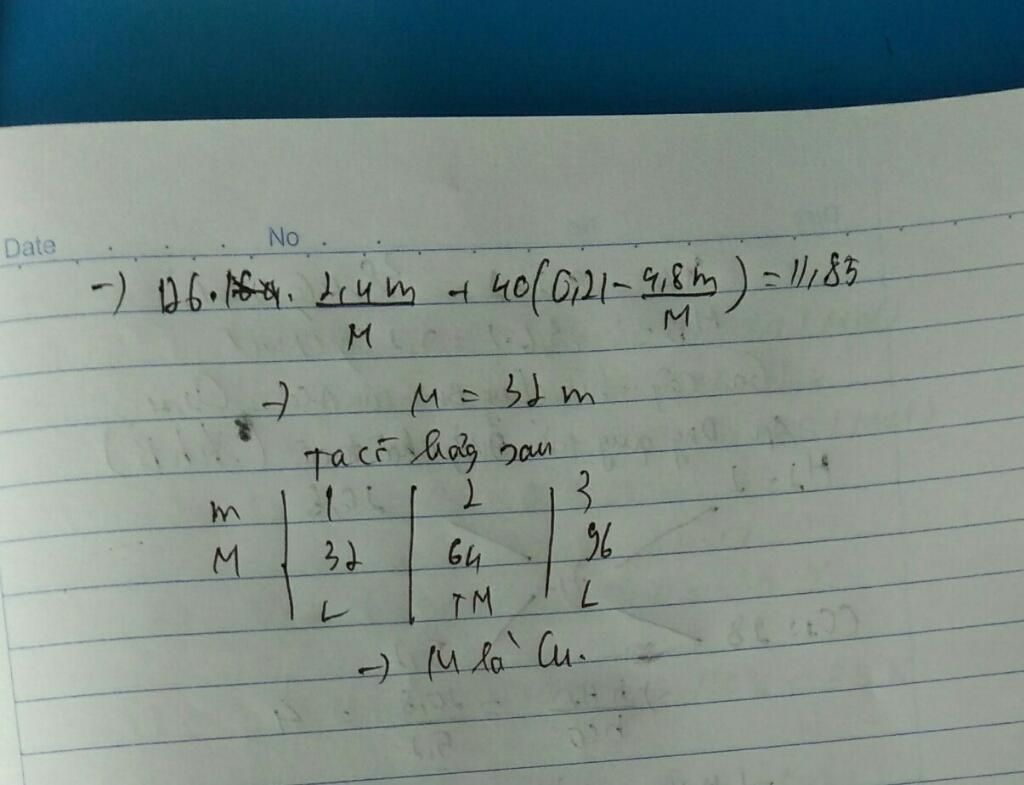 Date No
→ 126. 2,4m/M + 40(0,21 - 4,8m/M) = 11,85
→ M = 32 m
Ta có bảng sau
m | 1 | 2 | 3
M | 32 | 64 | 96
L | TM | L
→ M là Cu.